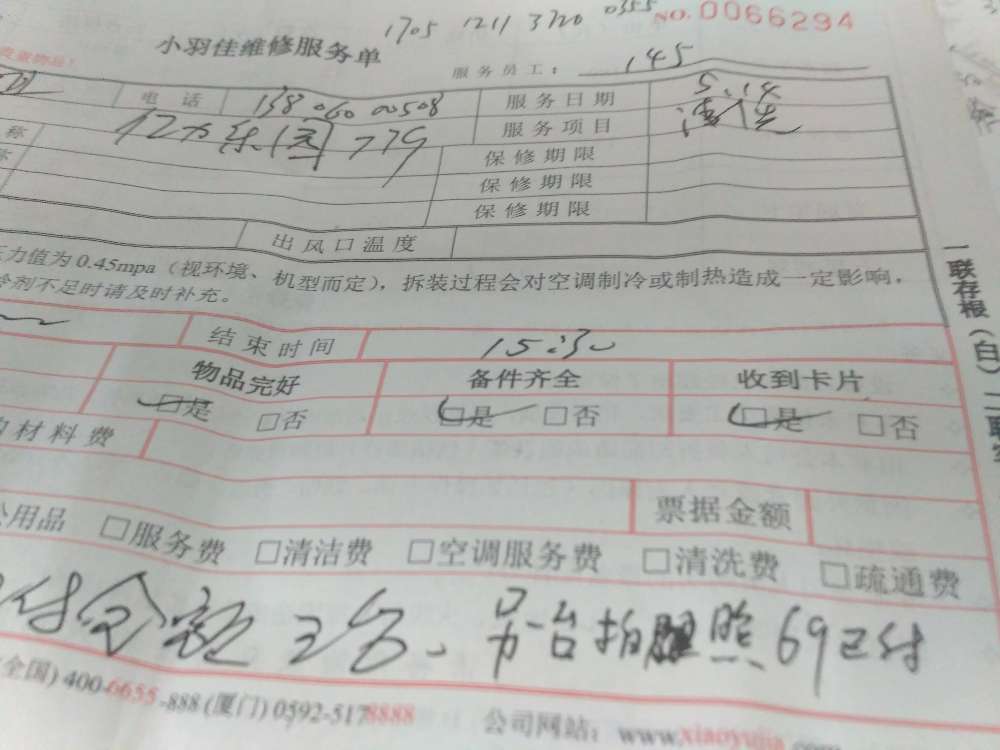 1705 1211 3720 0355
NO. 0066294
小羽佳维修服务单
服务员工： 145
电话 138 060 00508 服务日期 5.14
称 亿力乐园 779 服务项目 清洗
称 保修期限
保修期限
保修期限
出风口温度
力值为0.45mpa（视环境、机型而定），拆装过程会对空调制冷或制热造成一定影响，
冷剂不足时请及时补充。
结束时间 15:30
物品完好 备件齐全 收到卡片
□是 □否 □是 □否 □是 □否
材料费
票据金额
公用品 □服务费 □清洁费 □空调服务费 □清洗费 □疏通费
付金额 另一台拍照 69已付
全国) 400-6655-888 (厦门) 0592-5178888 公司网站：www.xiaoyujia.com
一联存根（白）二联